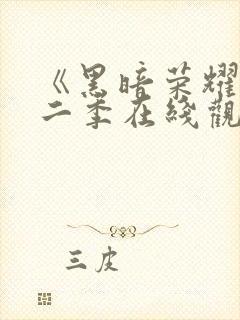 《黑暗荣耀
二季在线觀
三皮